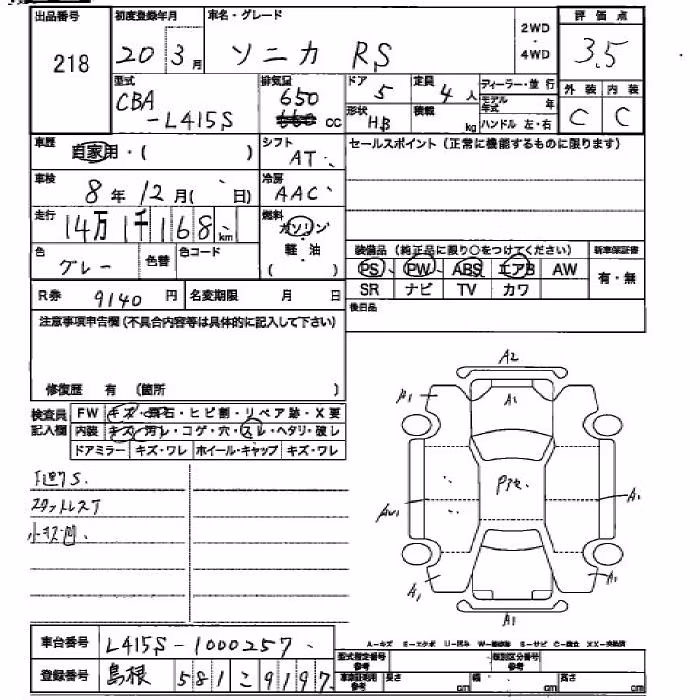 出品番号 初度登録年月 車名・グレード 2WD ・ 4WD 評価点
218 20 3月 ソニカ RS 3.5
型式 排気量 ドア 定員 ディーラー・並行 外装 内装
CBA 650 5 4人 モデル年式 年 C C
-L415S 660 cc 形状 HB 積載 kg ハンドル 左・右
車歴 自家用・( ) シフト AT セールスポイント(正常に機能するものに限ります)
車検 8年12月( 日) 冷房 AAC
走行 14万1千168km 燃料 ガソリン・軽油 ( )
色 グレー 色替 色コード 装備品(純正品に限り○をつけてください) 新車保証書
PS PW ABS エアB AW 有・無
R券 9140円 名変期限 月 日 SR ナビ TV カワ
注意事項申告欄(不具合内容等は具体的に記入して下さい) 後日品
修復歴 有 (箇所 )
検査員記入欄 FW キズ・飛石・ヒビ割・リペア跡・X要
内装 キズ・汚レ・コゲ・穴・スレ・ヘタリ・破レ
ドアミラー キズ・ワレ ホイール・キャップ キズ・ワレ
A2
A1 A1 A1
スタットレス
A1
A1 A1
A1
車台番号 L415S-1000257
A-キズ E-エクボ U-凹み S-サビ
登録番号 島根 581 2 9197
型式指定番号 参考 類別区分番号 参考
長さ cm 幅 cm 高さ cm